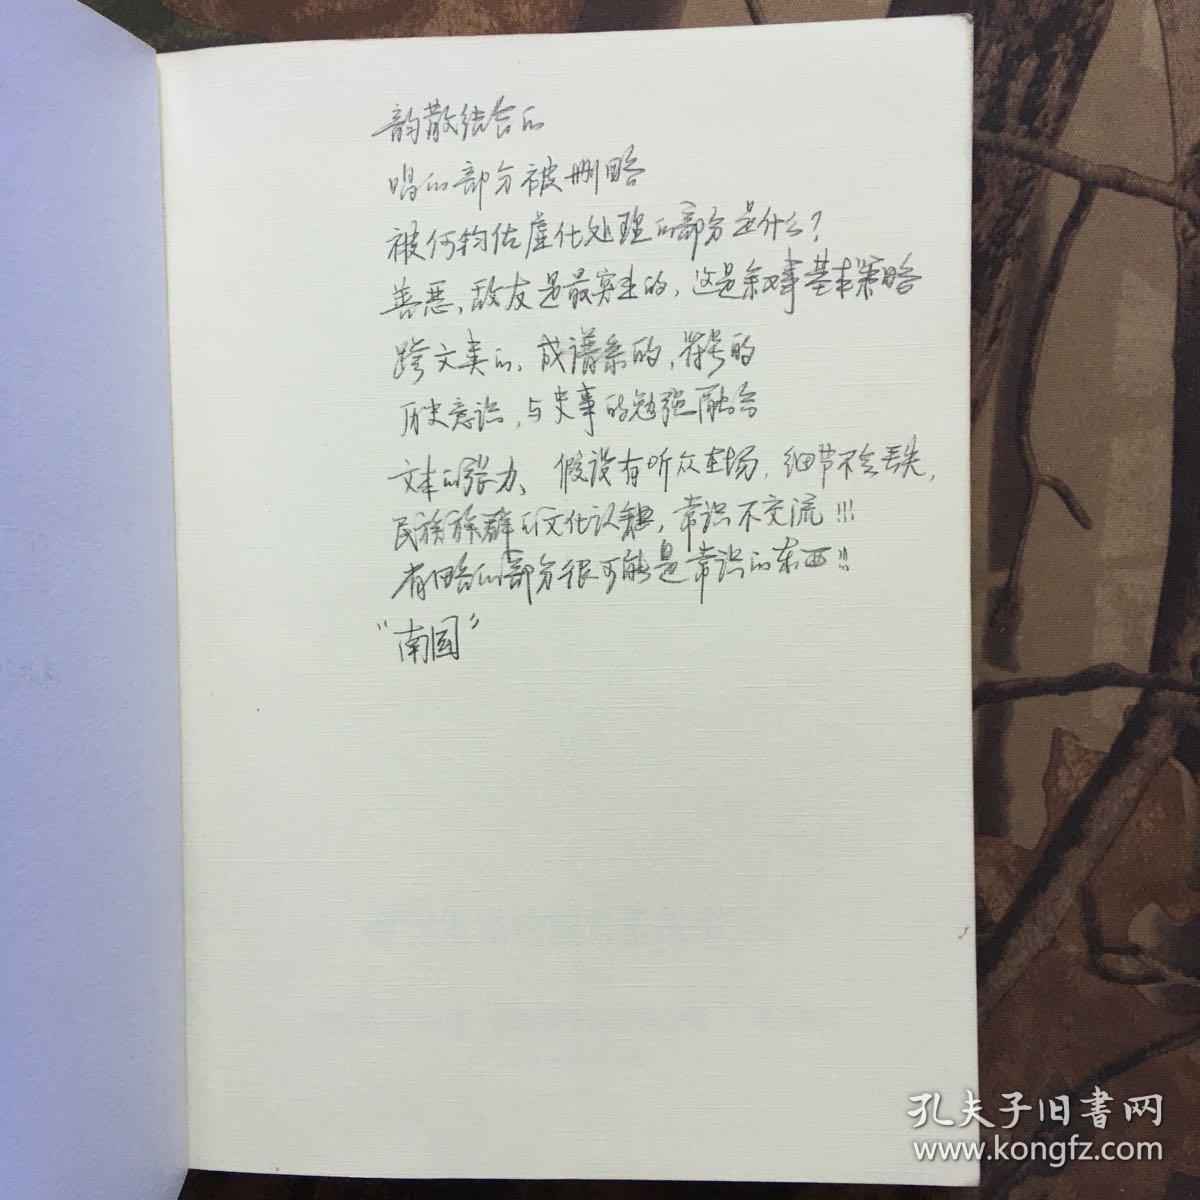 韵散结合的
唱的部分被删略
被何钧佑虚化处理的部分是什么？
善恶，敌友是最突出的，这是叙事基本策略
跨文类的，成谱系的，符号的
历史意识，与史事的勉强融合
文本的张力、假设有听众在场，细节不会丢失，
民族族群的文化认知，常识不交流！！！
省略的部分很可能是常识的东西！！
“南国”
孔夫子旧书网
www.kongfz.com